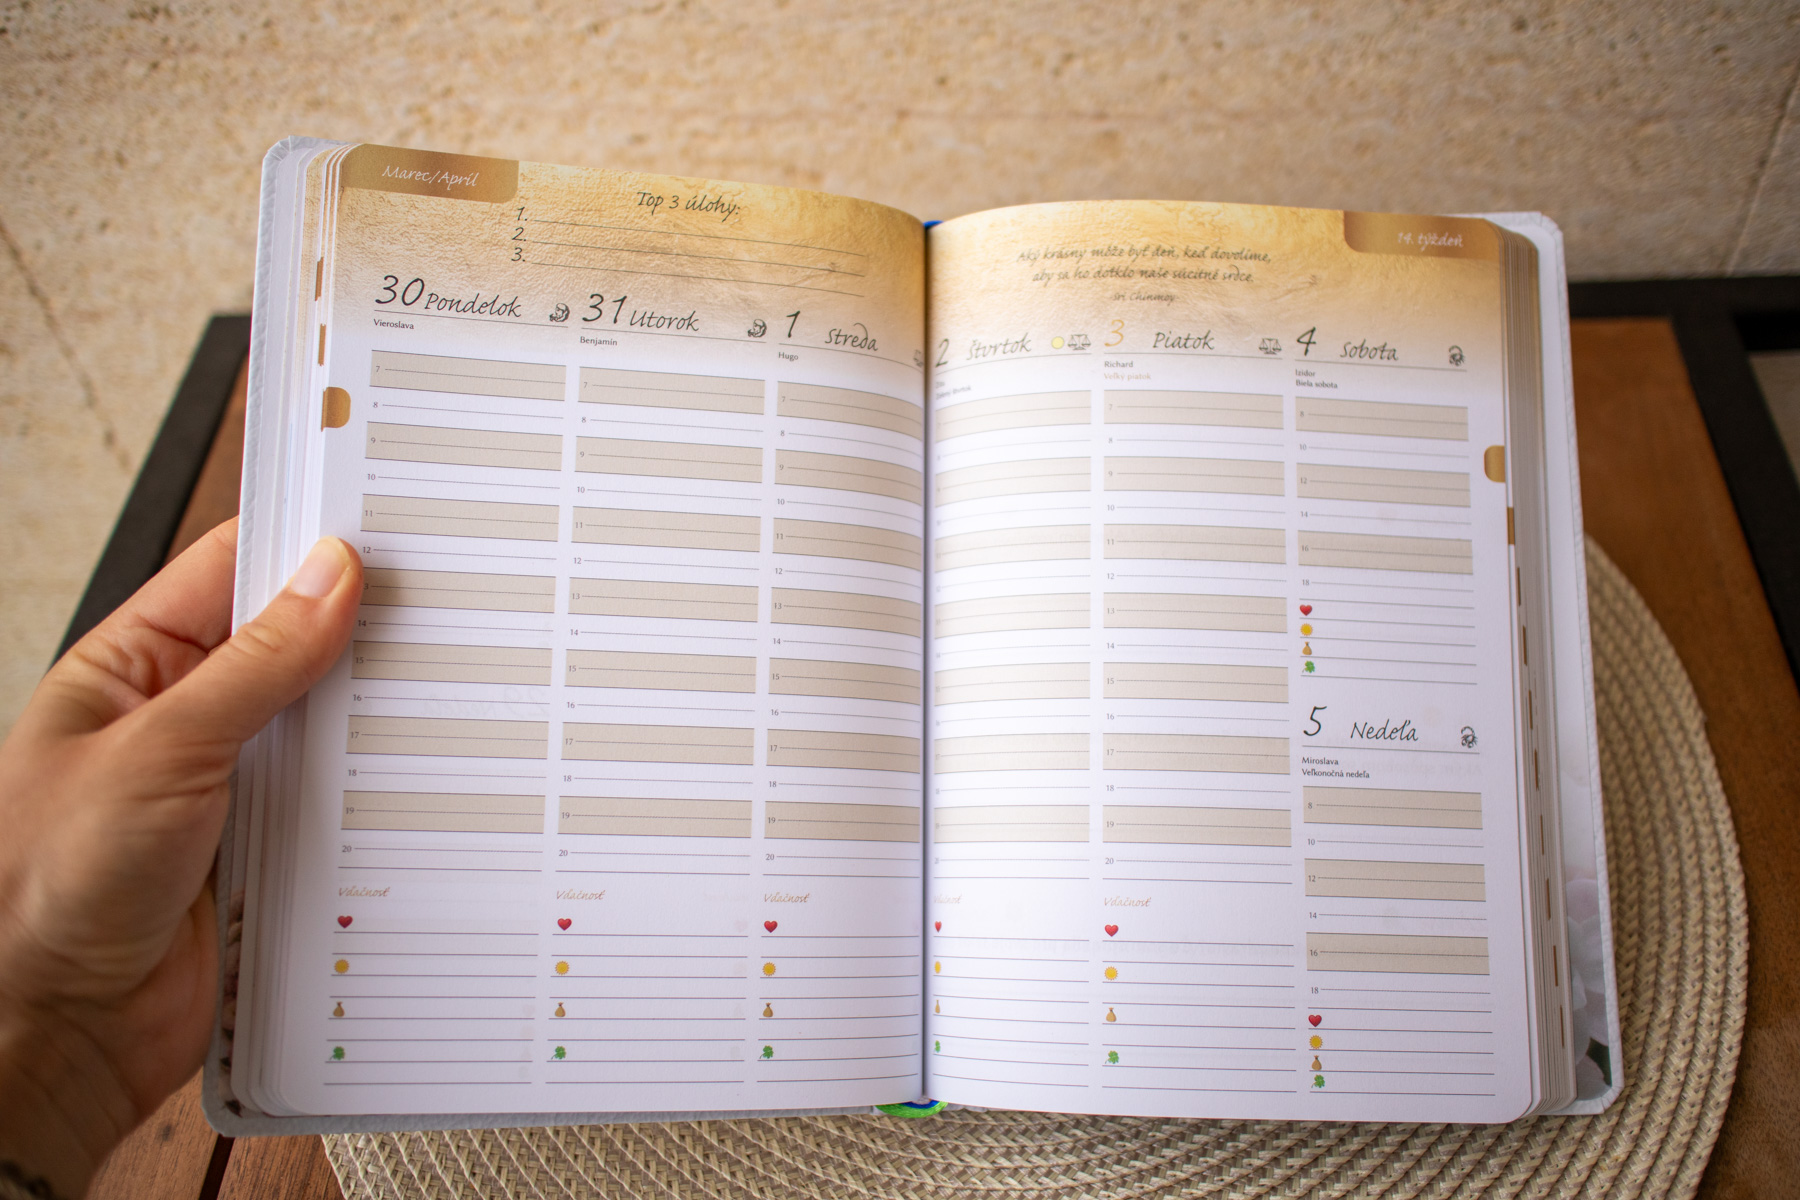 Marec/Apríl
Top 3 úlohy:
1.
2.
3.
30 Pondelok
Vieroslava
7
8
9
10
11
12
13
14
15
16
17
18
19
20
Vďačnosť
31 Utorok
Benjamín
7
8
9
10
11
12
13
14
15
16
17
18
19
20
Vďačnosť
1 Streda
Hugo
7
8
9
10
11
12
13
14
15
16
17
18
19
20
Vďačnosť
14. týždeň
Aký krásny môže byť deň, keď dovolíme,
aby sa ho dotklo naše súcitné srdce.
Sri Chinmoy
2 Štvrtok
3 Piatok
Richard
Veľký piatok
7
8
9
10
11
12
13
14
15
16
17
18
19
20
Vďačnosť
4 Sobota
Izidor
Biela sobota
8
10
12
14
16
18
5 Nedeľa
Miroslava
Veľkonočná nedeľa
8
10
12
14
16
18